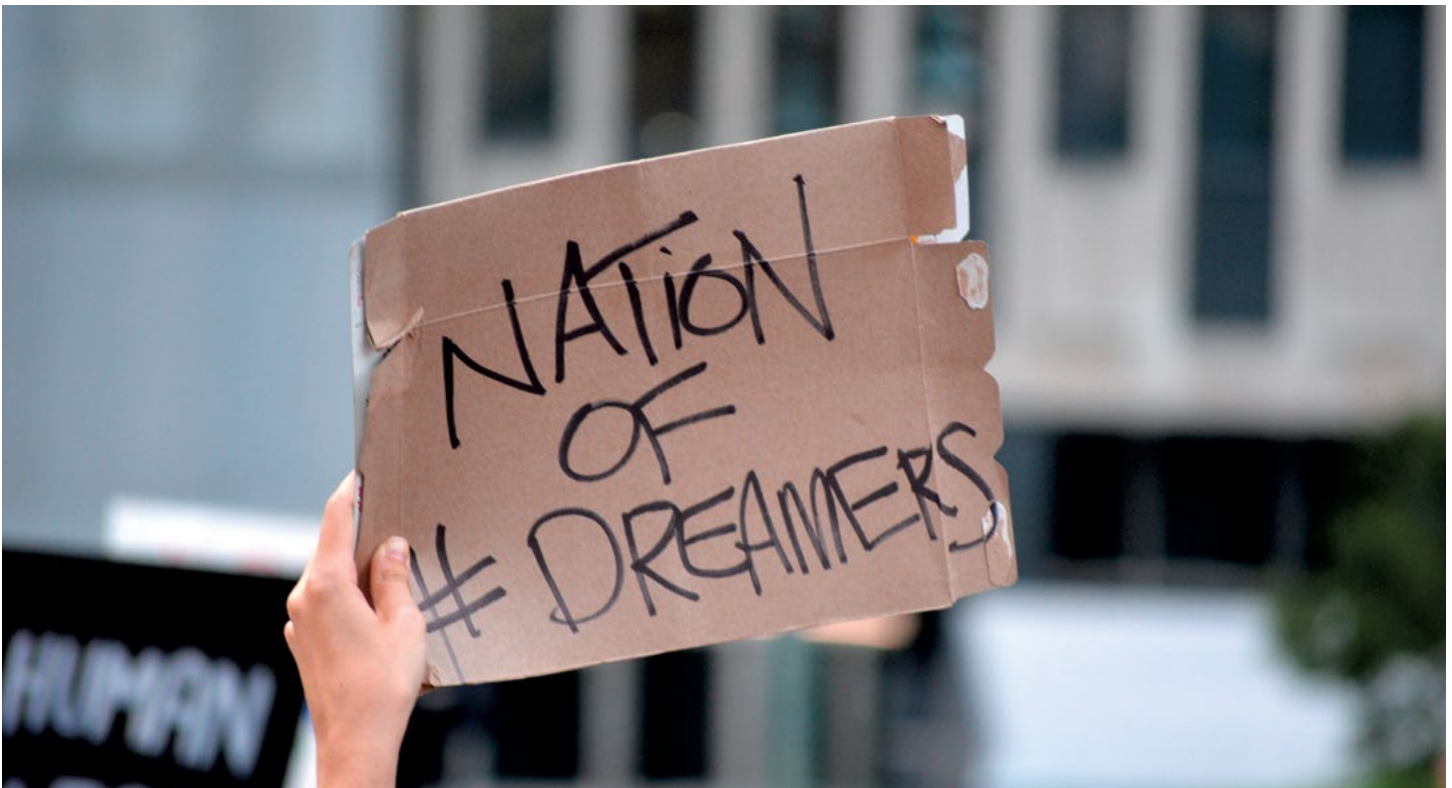 NATiON
OF
# DREAMERS
HUMAN